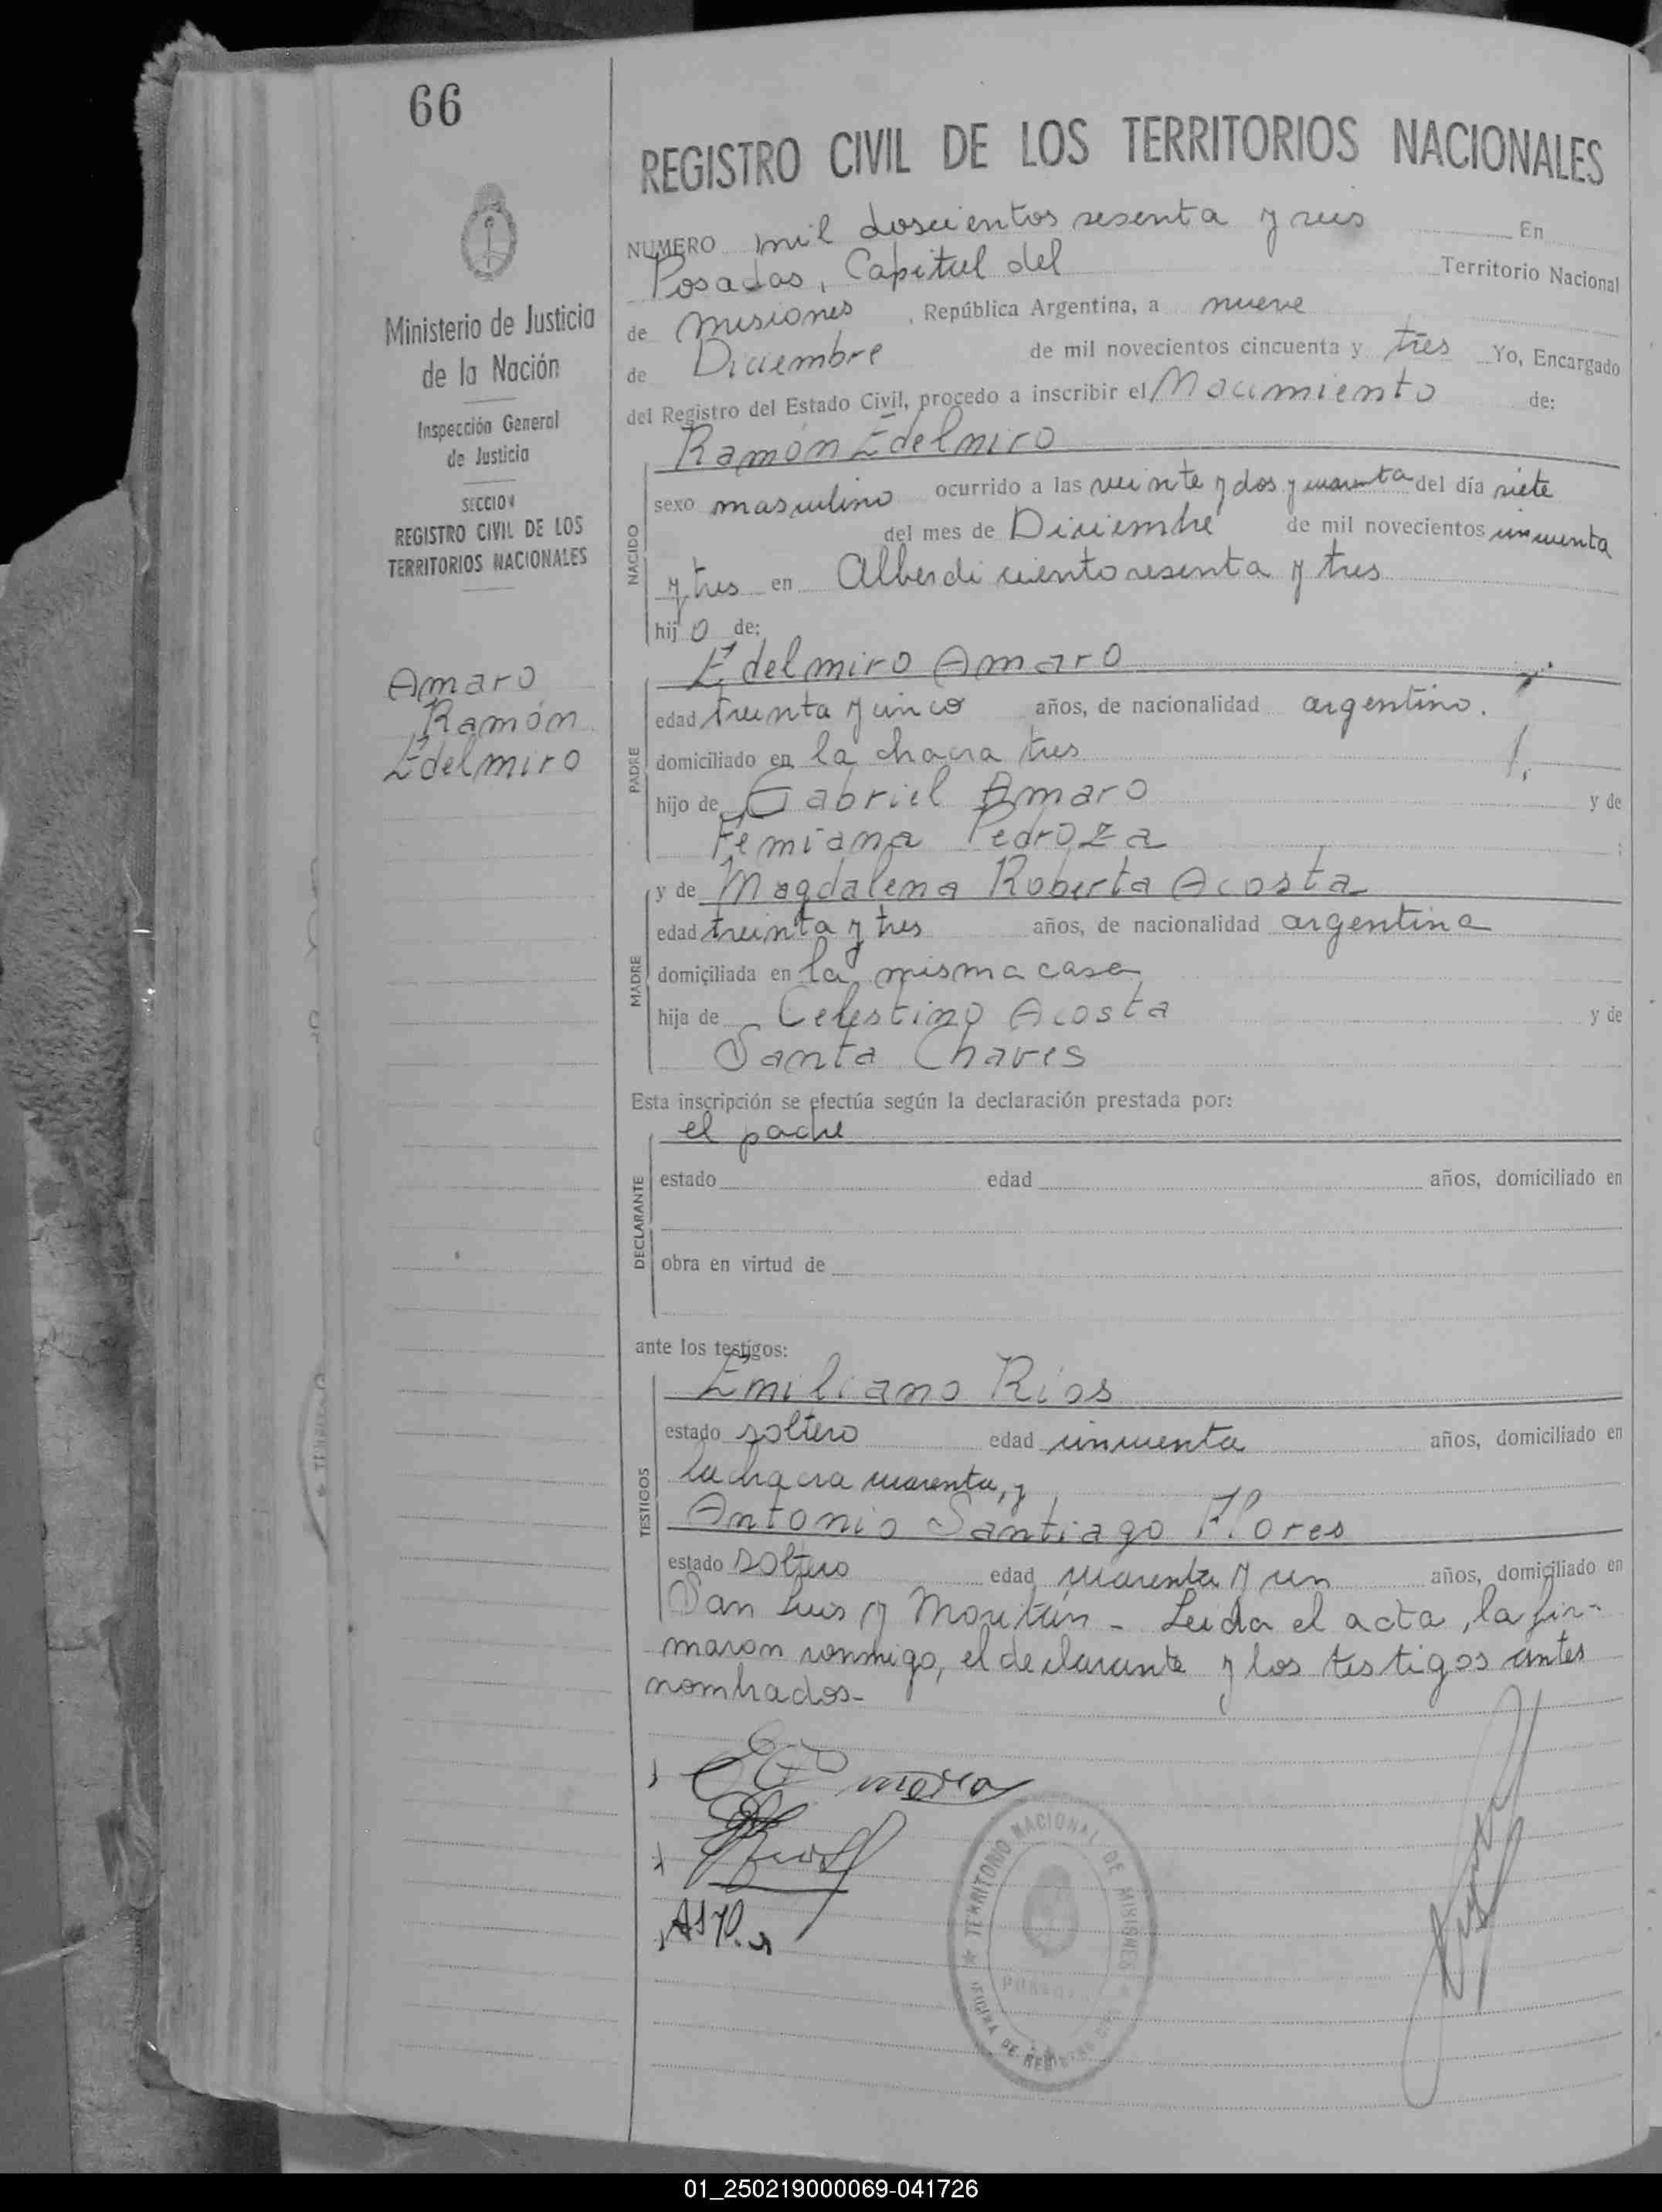 66
Ministerio de Justicia
de la Nación
Inspección General
de Justicia
SECCION
REGISTRO CIVIL DE LOS
TERRITORIOS NACIONALES
Amaro
Ramón
Edelmiro
REGISTRO CIVIL DE LOS TERRITORIOS NACIONALES
NUMERO mil doscientos sesenta y seis En
Posadas, Capital del Territorio Nacional
de Misiones, República Argentina, a nueve
de Diciembre de mil novecientos cincuenta y tres Yo, Encargado
del Registro del Estado Civil, procedo a inscribir el Nacimiento de:
Ramón Edelmiro
NACIDO
sexo masculino ocurrido a las veinte y dos y cuarenta del día siete
del mes de Diciembre de mil novecientos cincuenta
y tres en Alberdi ciento sesenta y tres
hijo de:
Edelmiro Amaro
PADRE
edad treinta y cinco años, de nacionalidad argentino.
domiciliado en la chacra tres
hijo de Gabriel Amaro y de
Femiana Pedroza
MADRE
y de Magdalena Roberta Acosta
edad treinta y tres años, de nacionalidad argentina
domiciliada en la misma casa
hija de Celestino Acosta y de
Santa Chaves
Esta inscripción se efectúa según la declaración prestada por:
el padre
DECLARANTE
estado edad años, domiciliado en
obra en virtud de
ante los testigos:
Emiliano Rios
TESTIGOS
estado soltero edad cincuenta años, domiciliado en
la chacra cuarenta, y
Antonio Santiago Flores
estado soltero edad cuarenta y un años, domiciliado en
San Luis y Moritán - Leida el acta, la fir-
maron conmigo, el declarante y los testigos antes
nombrados-
TERRITORIO NACIONAL DE MISIONES
POSADAS
OFICINA DE REGISTRO
01_250219000069-041726